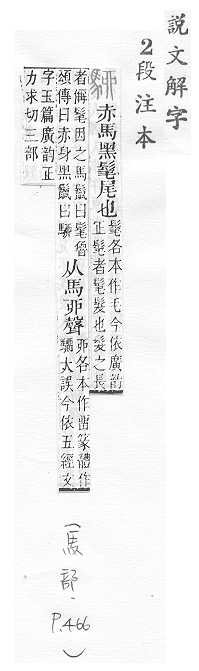 説文解字
2段注本
駵 赤馬黑髦尾也
髦各本作毛今依廣韵
正髦者髦髮也髮之長
者偁髦因之馬鬣曰髦魯
頌傳曰赤身黑鬣曰駵
从馬丣聲
丣各本作畱篆體作
騮大誤今依五經文
字玉篇廣韵正
力求切三部
(馬部. P.466)